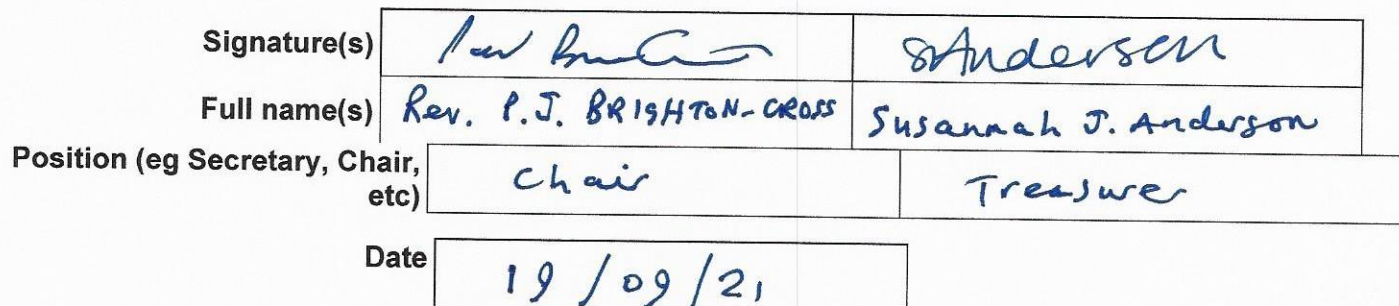 Signature(s) SJAndersen
Full name(s) Rev. P.J. BRIGHTON-CROSS Susannah J. Anderson
Position (eg Secretary, Chair,
etc) Chair Treasurer
Date 19/09/21